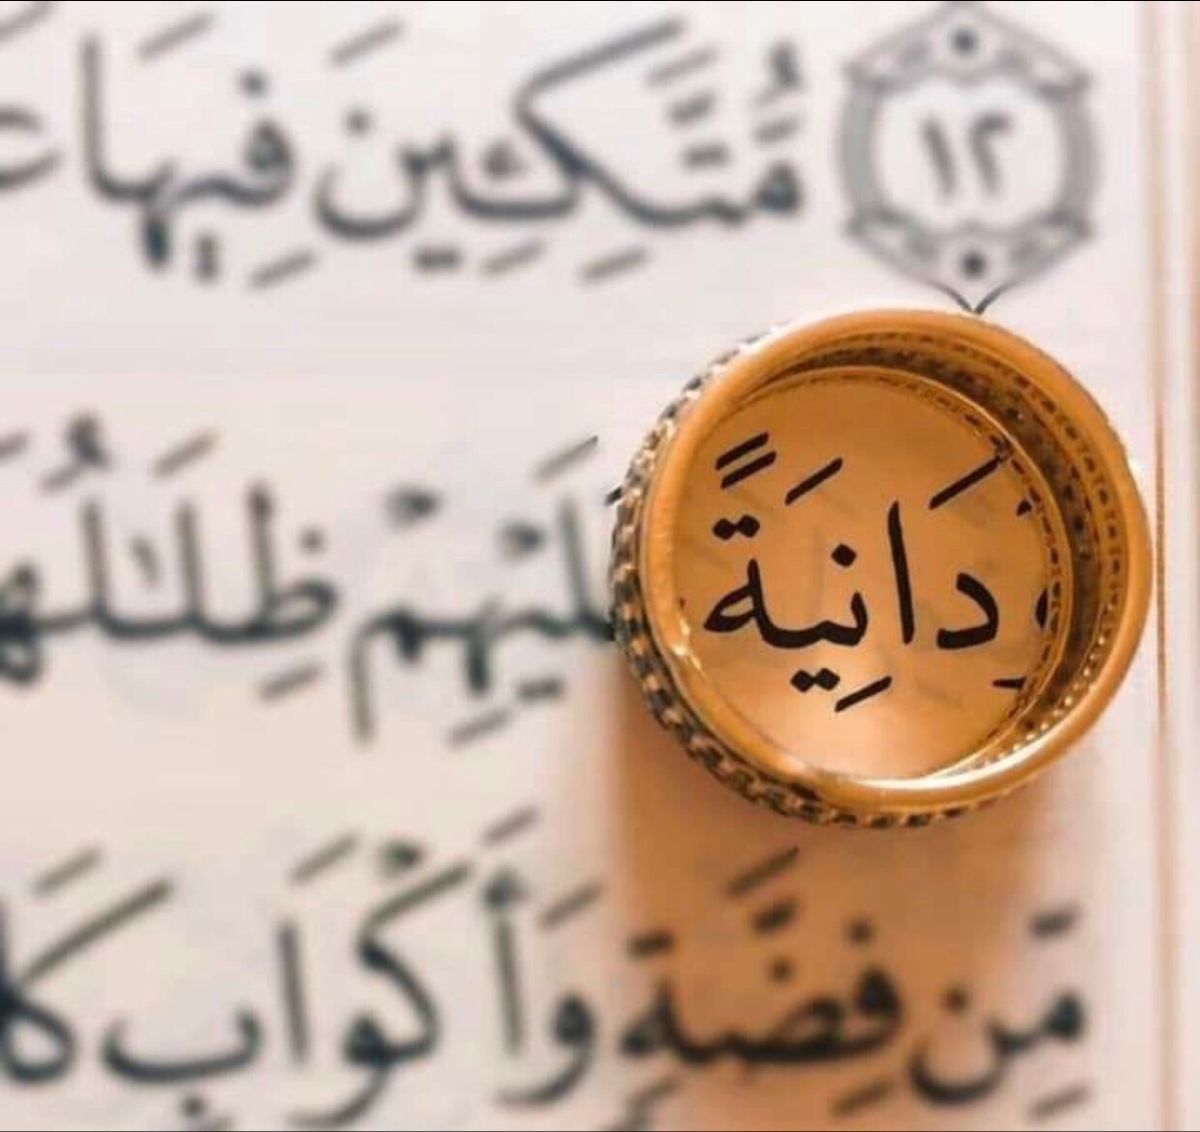 ١٢ مُّتَّكِـِٔينَ فِيهَا
وَدَانِيَةً عَلَيْهِمْ ظِلَـٰلُهَا
مِّن فِضَّةٍ وَأَكْوَابٍ